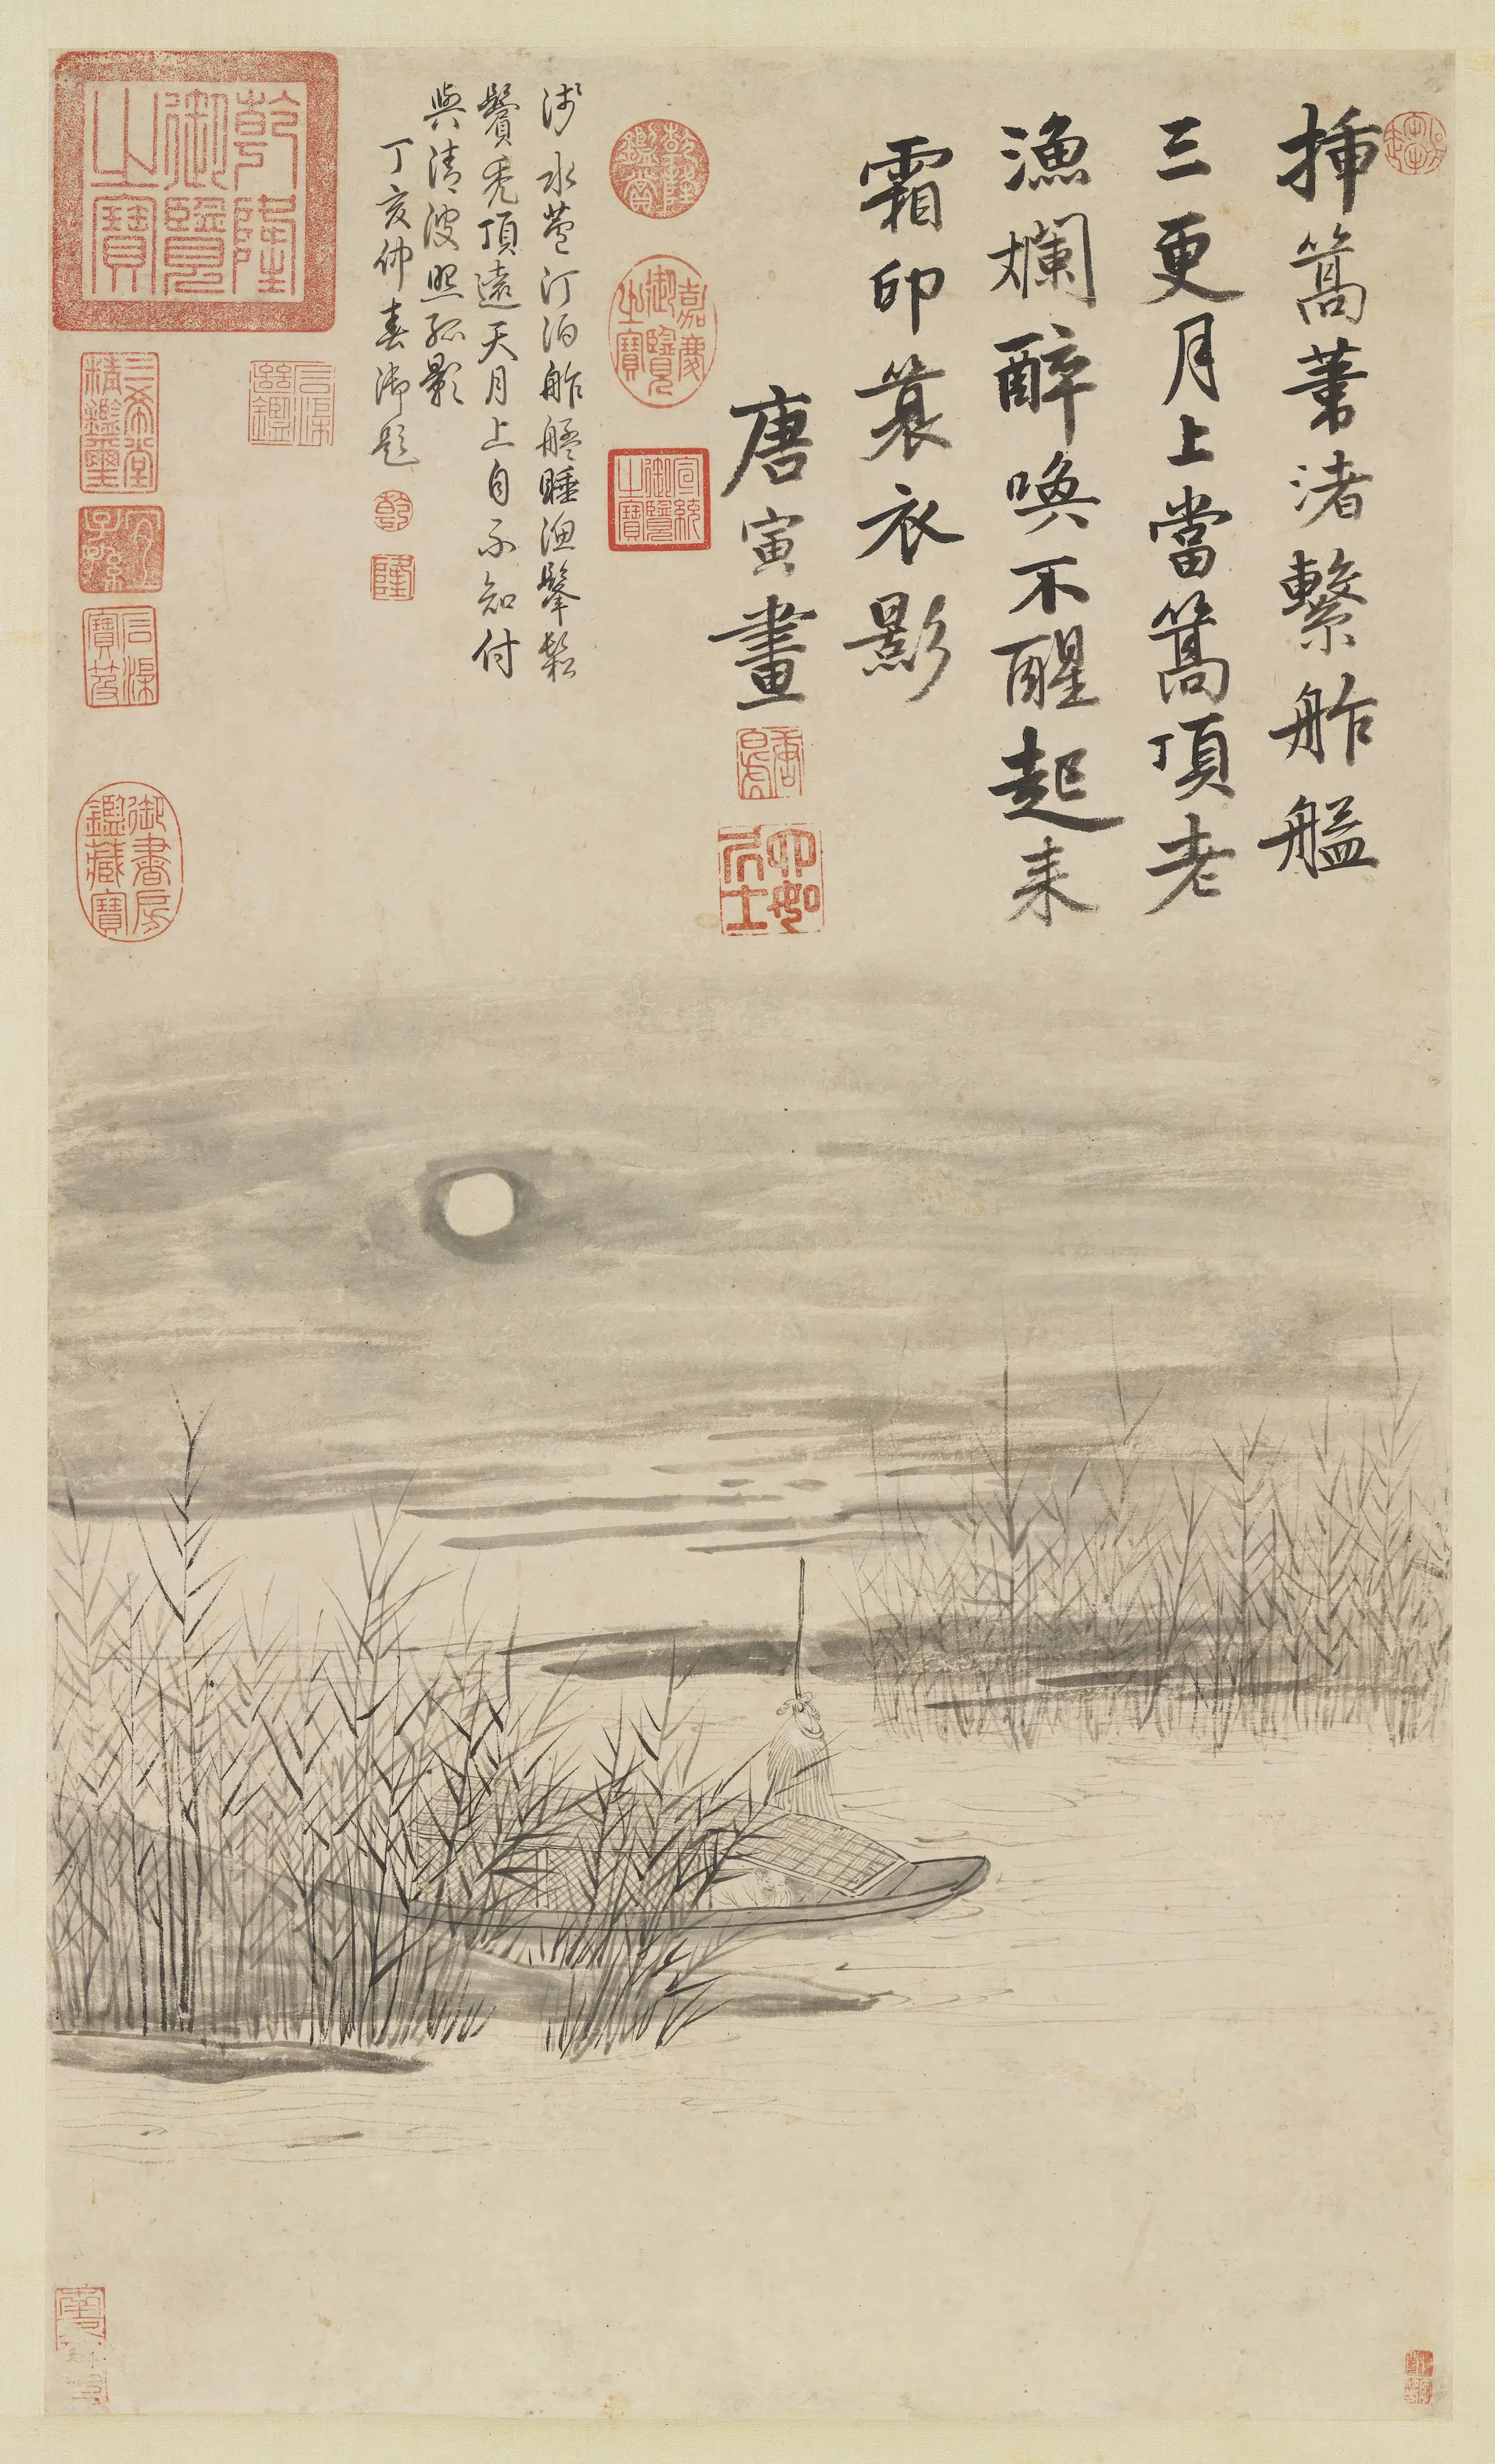 插篙葦渚繫舴艋
三更月上當篙頂老
漁爛醉喚不醒起来
霜印簑衣影
唐寅畫
唐白虎
六如居士
乾隆鑑賞
嘉慶御覽之寶
宣統御覽之寶
淺水芦汀泊舴艋睡漁髼鬆
鬢禿頂遠天月上自不知付
與清波照孤影
丁亥仲春御題
乾
隆
乾隆御覽之寶
石渠寶笈
三希堂精鑑璽
宜子孫
御書房鑑藏寶